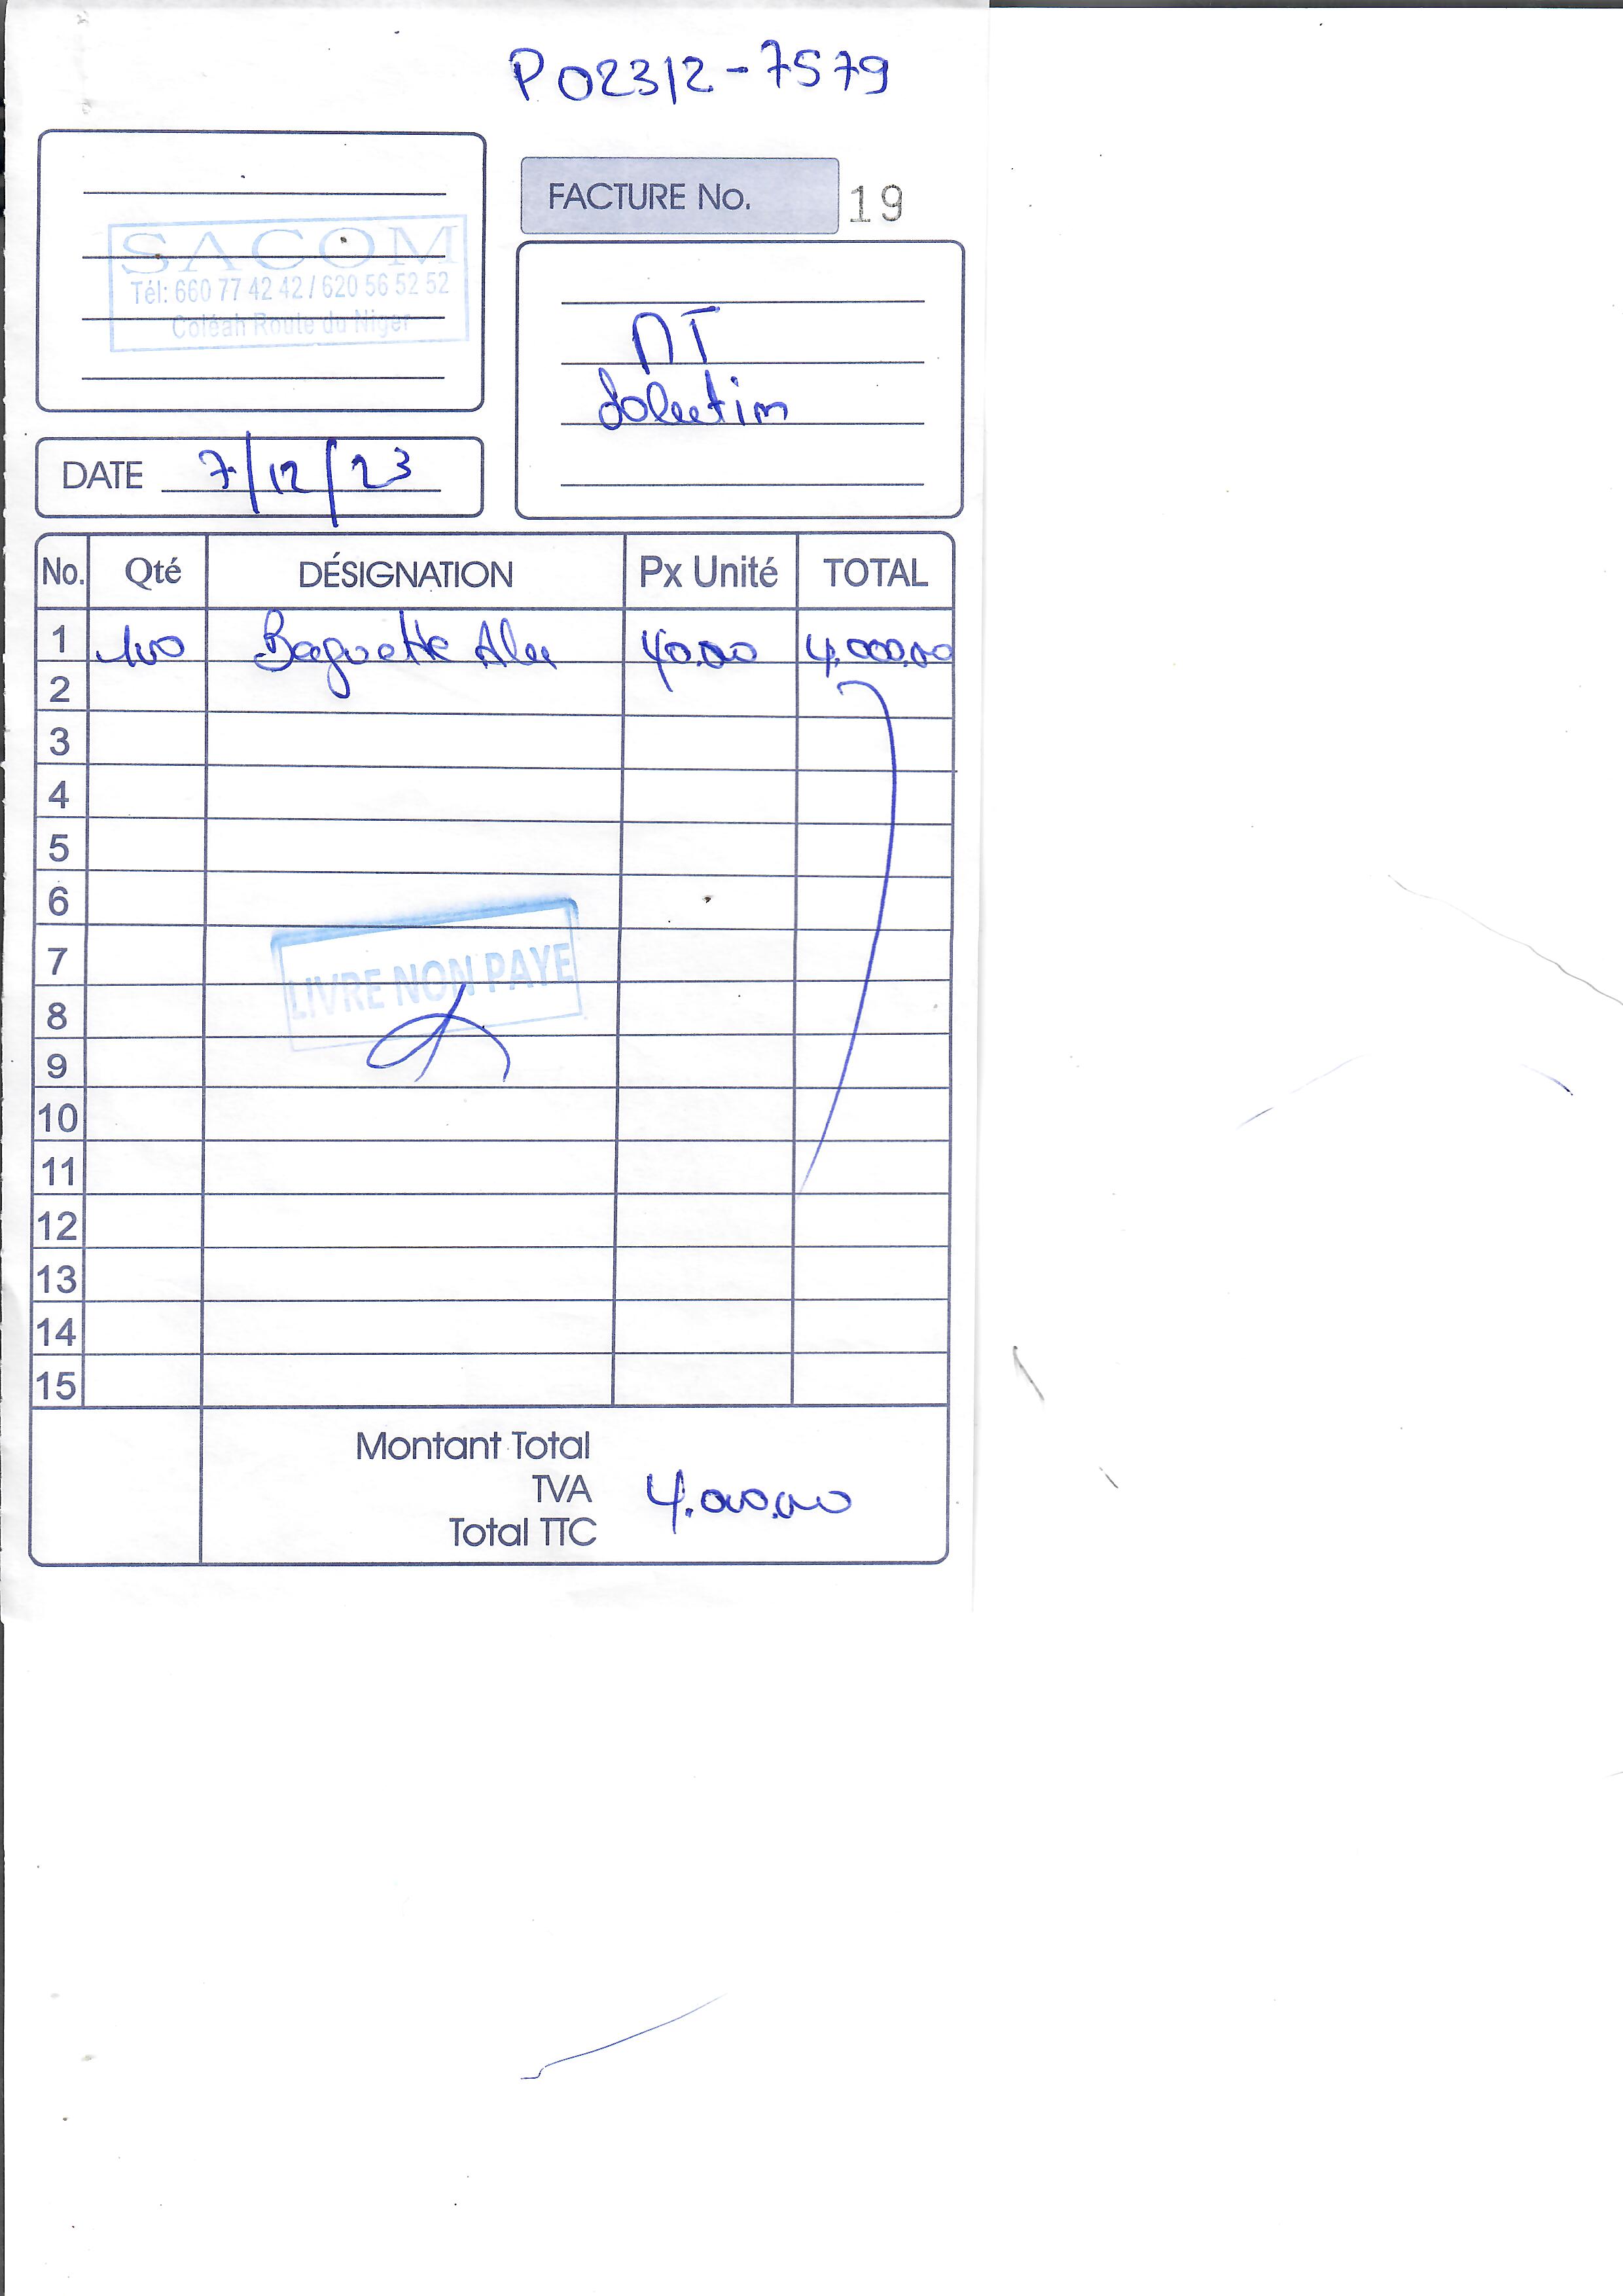 PO2312-7579
FACTURE No. 19
SACOM
Tél: 660 77 42 42 / 620 56 52 52
Coléah Route du Niger
DATE 7/12/23
No. Qté DÉSIGNATION Px Unité TOTAL
1 100 Baguette Alu 40.000 4.000.000
2
3
4
5
6
7
LIVRE NON PAYE
8
9
10
11
12
13
14
15
Montant Total
TVA 4.000.000
Total TTC